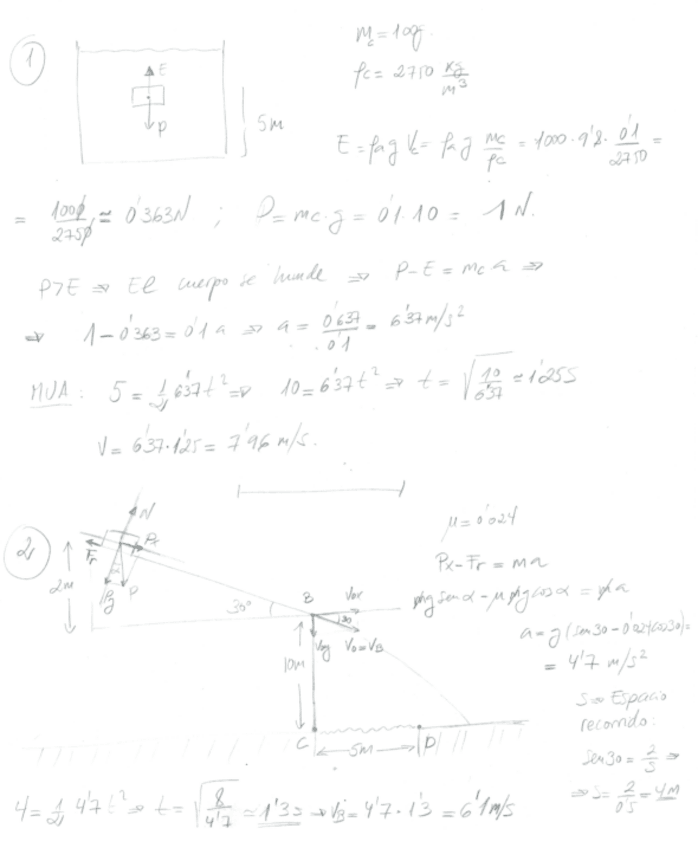 1
m_c = 10g.
ρc = 2750 kg/m³
E
P
5m
E = ρa g V_c = ρa g mc/ρc = 1000 · 9'8 · 0'1/2750 =
= 1000/2750 ≃ 0'363N ; P = mc · g = 0'1 · 10 = 1 N.
P>E ⇒ El cuerpo se hunde ⇒ P - E = mc a ⇒
⇒ 1 - 0'363 = 0'1 a ⇒ a = 0'637/0'1 = 6'37 m/s²
MUA : 5 = 1/2 6'37 t² ⇒ 10 = 6'37 t² ⇒ t = √10/6'37 ≃ 1'25 s
V = 6'37 · 1'25 = 7'96 m/s.
2
N
Fr
Px
Py
P
α
2m
30°
B
Vox
30
Voy
Vo=VB
10m
C
5m
D
μ = 0'024
Px - Fr = ma
mg sen α - μ mg cos α = m a
a = g (sen 30 - 0'024 cos 30) =
= 4'7 m/s²
S ⇒ Espacio
recorrido :
sen 30 = 2/S ⇒
⇒ S = 2/0'5 = 4m
4 = 1/2 4'7 t² ⇒ t = √8/4'7 ≃ 1'3 s ⇒ VB = 4'7 · 1'3 = 6'1 m/s